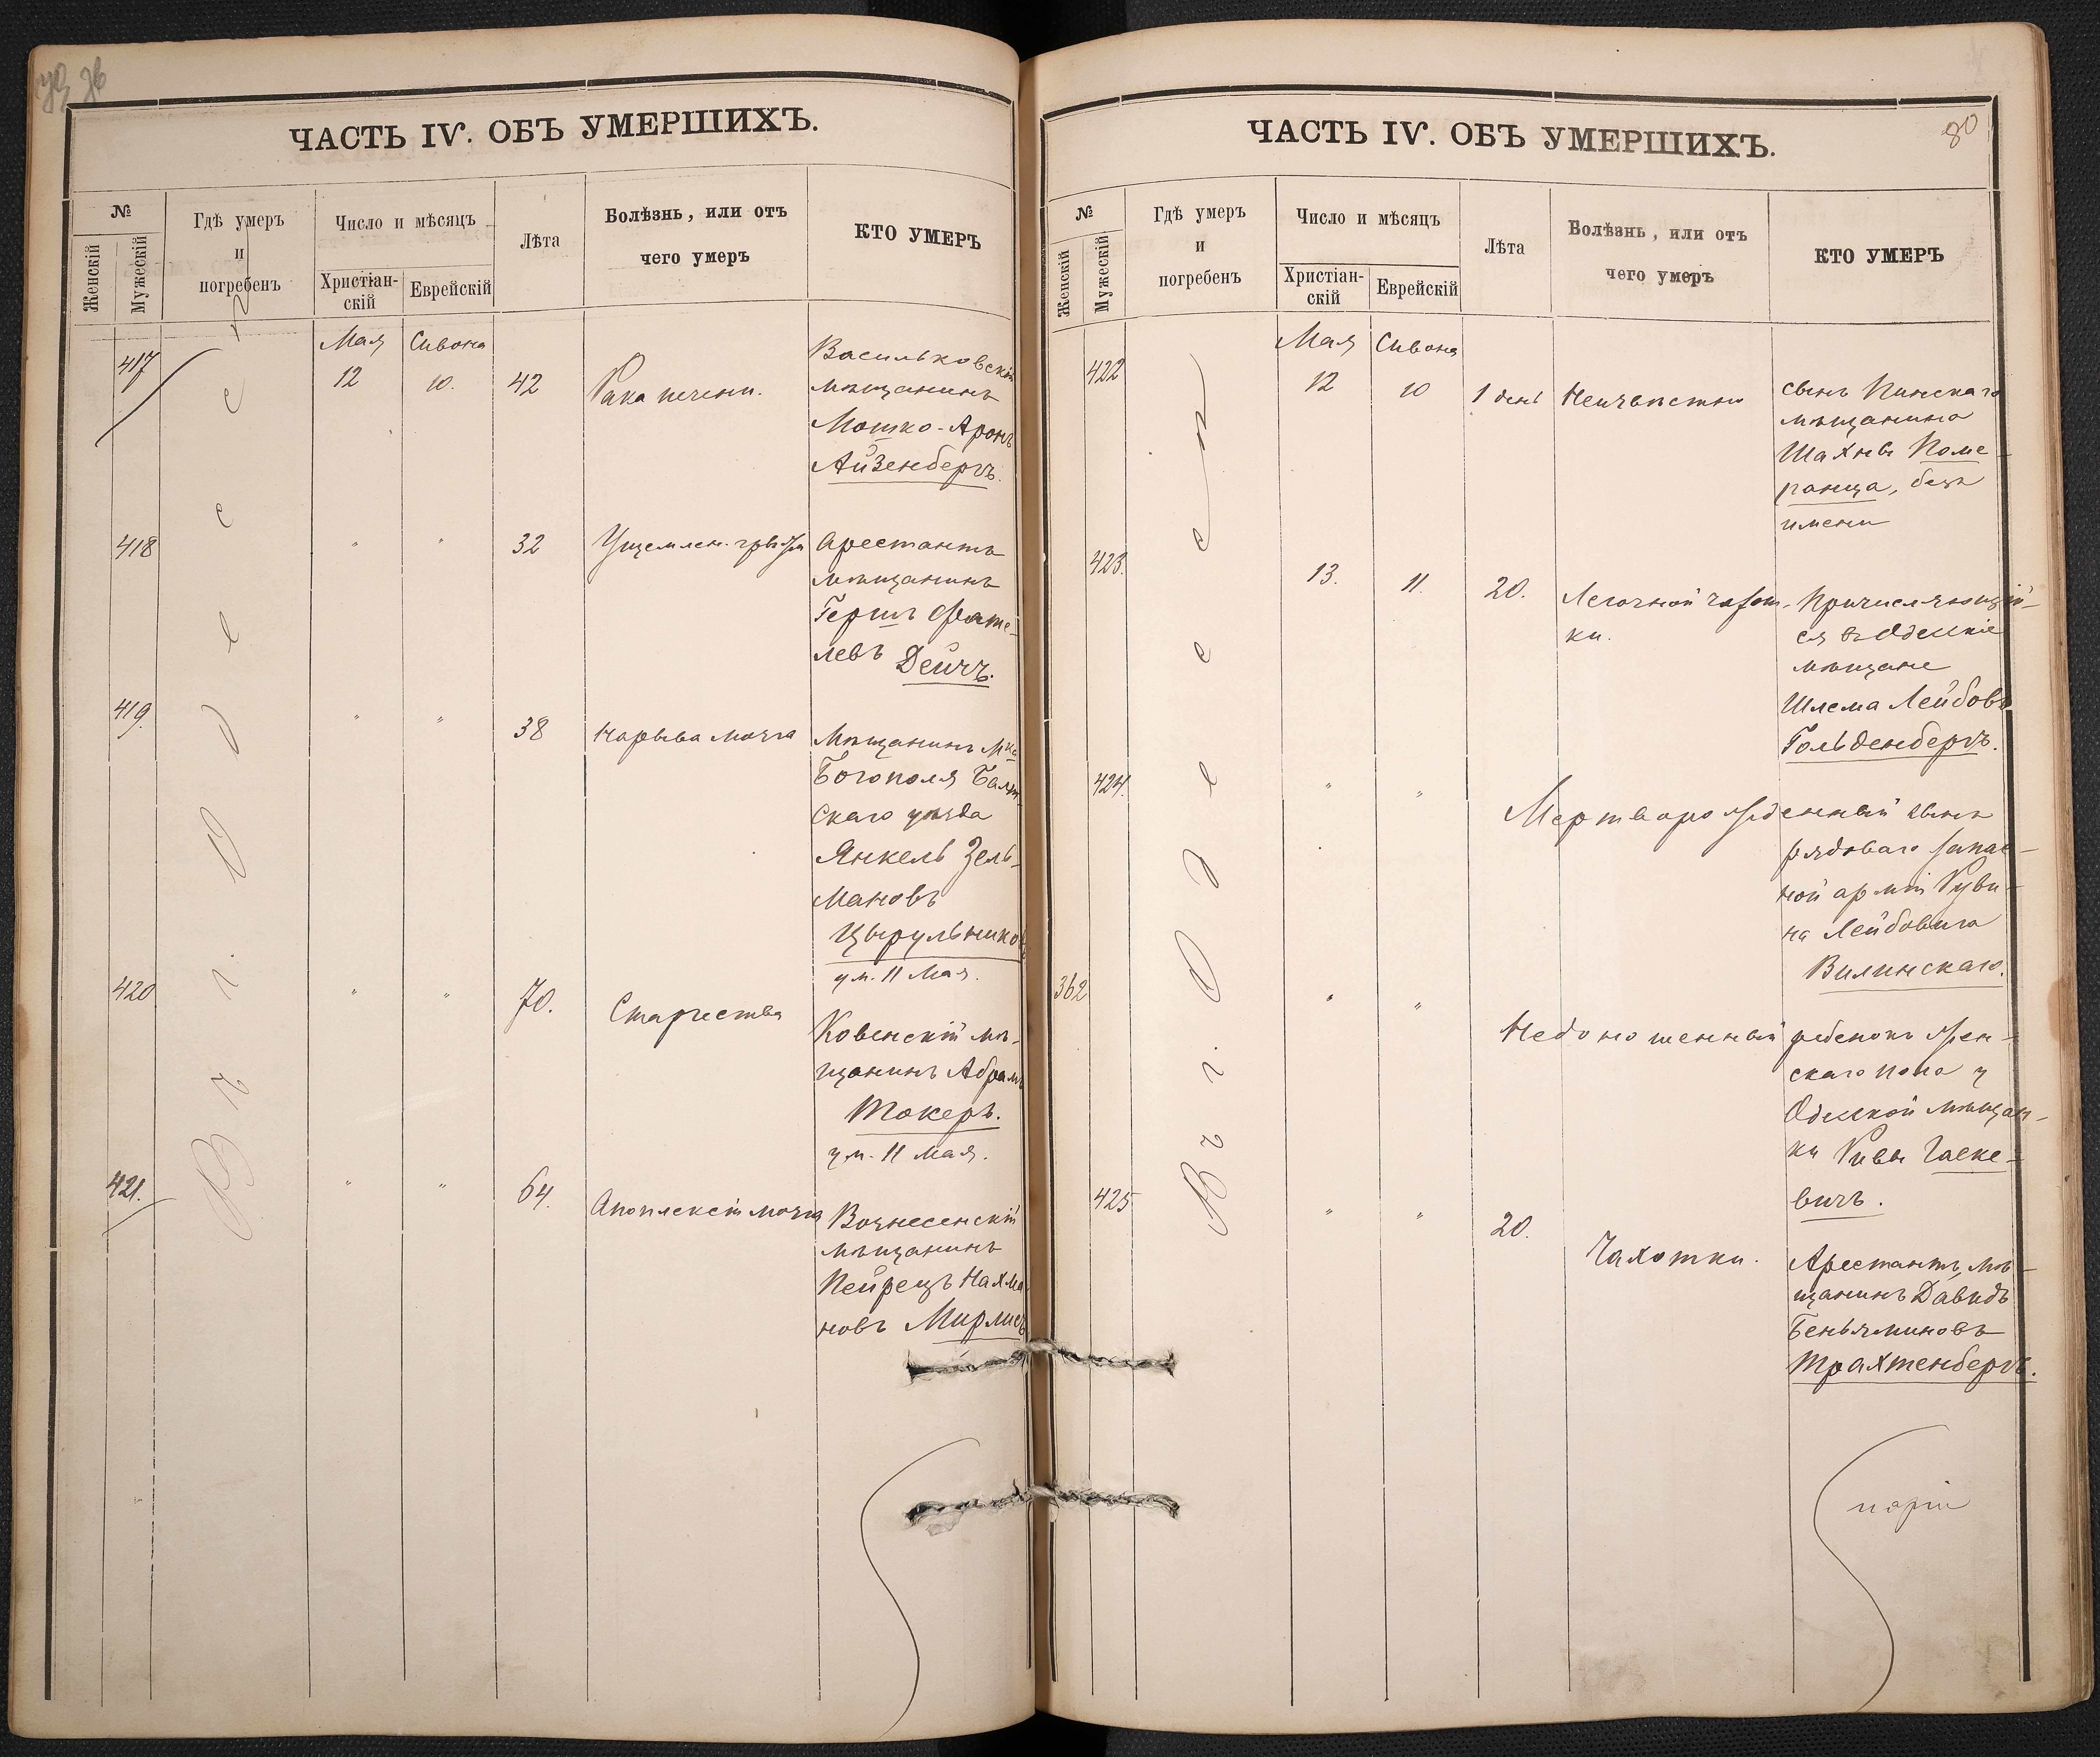 ЧАСТЬ IV. ОБЪ УМЕРШИХЪ.
№
Женскій
Мужескій
Гдѣ умеръ
и
погребенъ
Число и мѣсяцъ
Христіан-
скій
Еврейскій
Лѣта
Болѣзнь, или отъ
чего умеръ
КТО УМЕРЪ
Въ г. Одессѣ
Мая Сивона
417 12 10. 42 Рака печени.
Васильковскій
мѣщанинъ
Мошко-Аронъ
Айзенбергъ.
418 " " 32 Ущемлен. грыжи
Арестантъ
мѣщанинъ
Гершъ
левъ Дейчъ.
419. " " 38 Нарыва мозга
Мѣщанинъ м-ка
Богополя Балт-
скаго уѣзда
Янкель Зель-
мановъ
Цырульников
ум. 11 Мая.
420 " " 70. Старчества
Ковенскій мѣ-
щанинъ Абрамъ
Токеръ.
ум. 11 Мая.
421. " " 64. Апоплексіи мозга
Вознесенскій
мѣщанинъ
Пейрецъ Нахма
новъ Мирлисъ
ЧАСТЬ IV. ОБЪ УМЕРШИХЪ.
80
№
Женскій
Мужескій
Гдѣ умеръ
и
погребенъ
Число и мѣсяцъ
Христіан-
скій
Еврейскій
Лѣта
Болѣзнь, или отъ
чего умеръ
КТО УМЕРЪ
Въ г. Одессѣ
Мая Сивона
422 12 10 1 день Неизвѣстно
сынъ Пинскаго
мѣщанина
Шахны Поме-
ранца, безъ
имени
423. 13. 11. 20. Легочной чахот-
ки.
Причисляющій-
ся въ Одесскіе
мѣщане
Шлема Лейбовъ
Гольденбергъ.
424. " " Мертворожденный сынъ
рядоваго запас-
ной арміи Руви-
на Лейбовича
Вилинскаго.
362 " " Недоношенный ребенокъ жен-
скаго пола у
Одесской мѣщан-
ки Ривы Гаске-
вичъ.
425 " " 20. Чахотки.
Арестантъ, мѣ-
щанинъ Давидъ
Беньяминовъ
Трахтенбергъ.